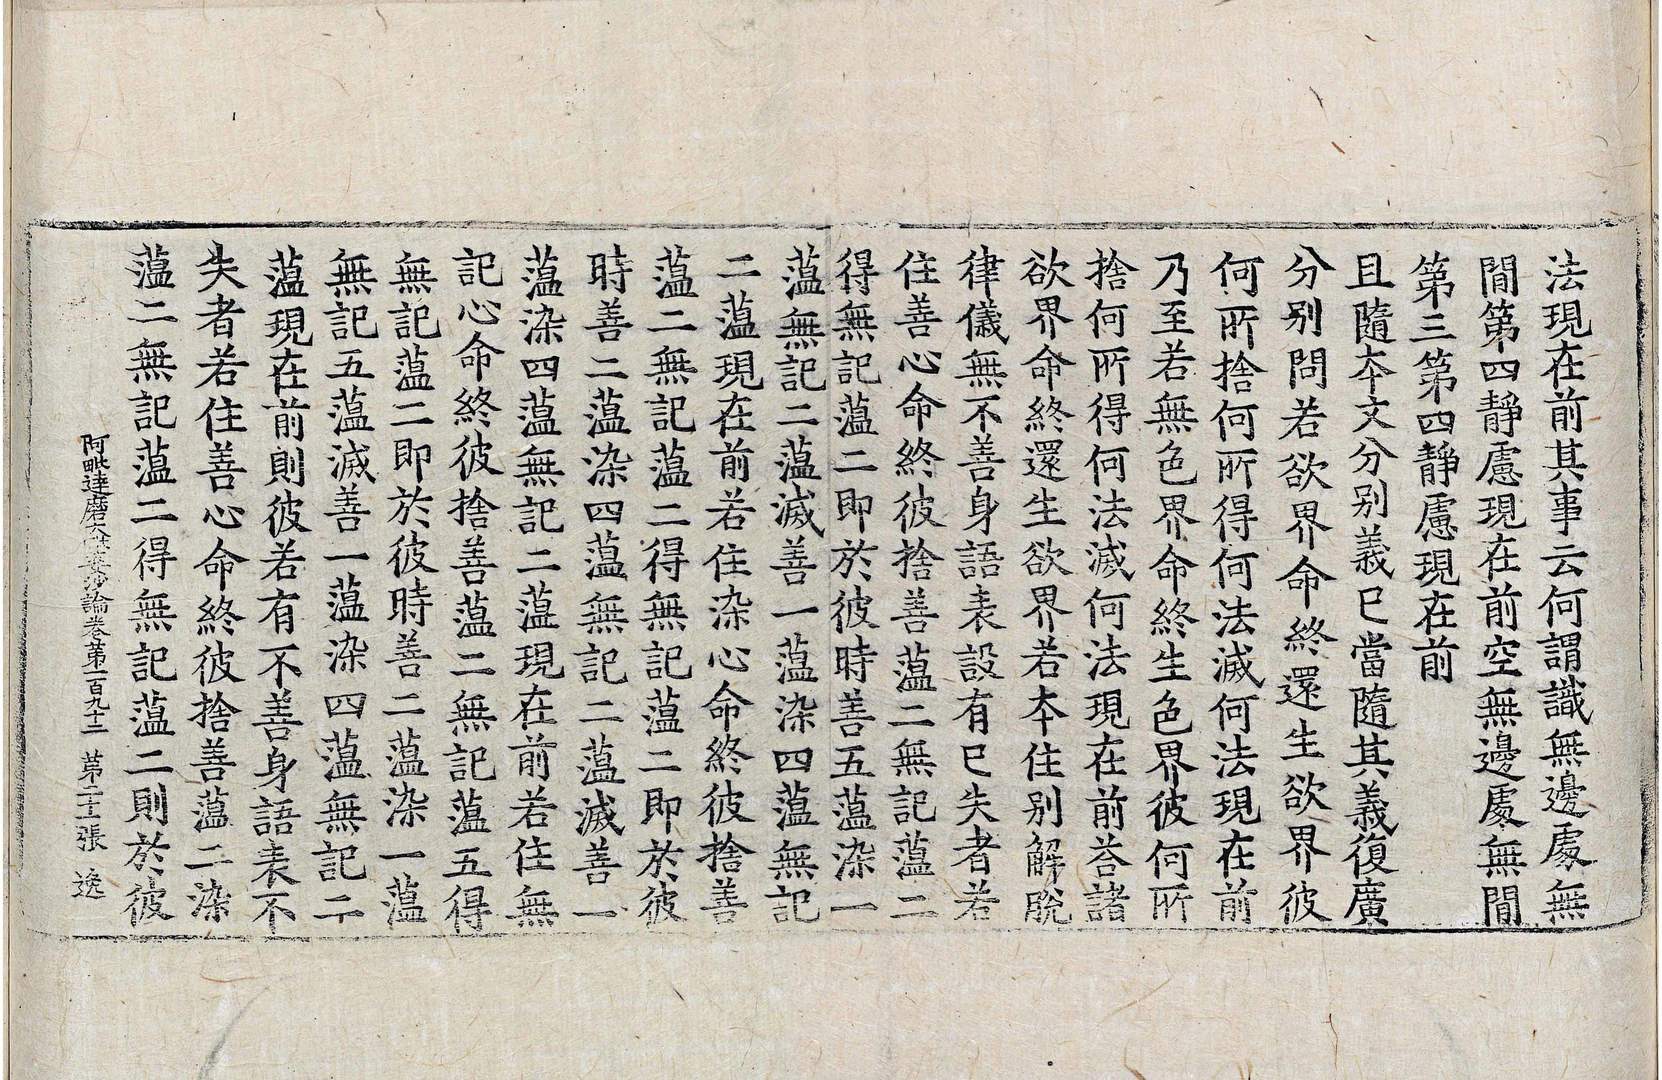 法現在前其事云何謂識無邊處無
間第四靜慮現在前空無邊處無間
第三第四靜慮現在前
且隨本文分别義已當隨其義復廣
分别問若欲界命終還生欲界彼
何所捨何所得何法滅何法現在前
乃至若無色界命終生色界彼何所
捨何所得何法滅何法現在前荅諸
欲界命終還生欲界若本住别解脫
律儀無不善身語表設有已失者若
住善心命終彼捨善薀二無記薀二
得無記薀二即於彼時善五薀染一
薀無記二薀滅善一薀染四薀無記
二薀現在前若住染心命終彼捨善
薀二無記薀二得無記薀二即於彼
時善二薀染四薀無記二薀滅善一
薀染四薀無記二薀現在前若住無
記心命終彼捨善薀二無記薀五得
無記薀二即於彼時善二薀染一薀
無記五薀滅善一薀染四薀無記二
薀現在前則彼若有不善身語表不
失者若住善心命終彼捨善薀二染
薀二無記薀二得無記薀二則於彼
阿毗達磨大毗婆沙論卷第一百九十二 第二十張 逸